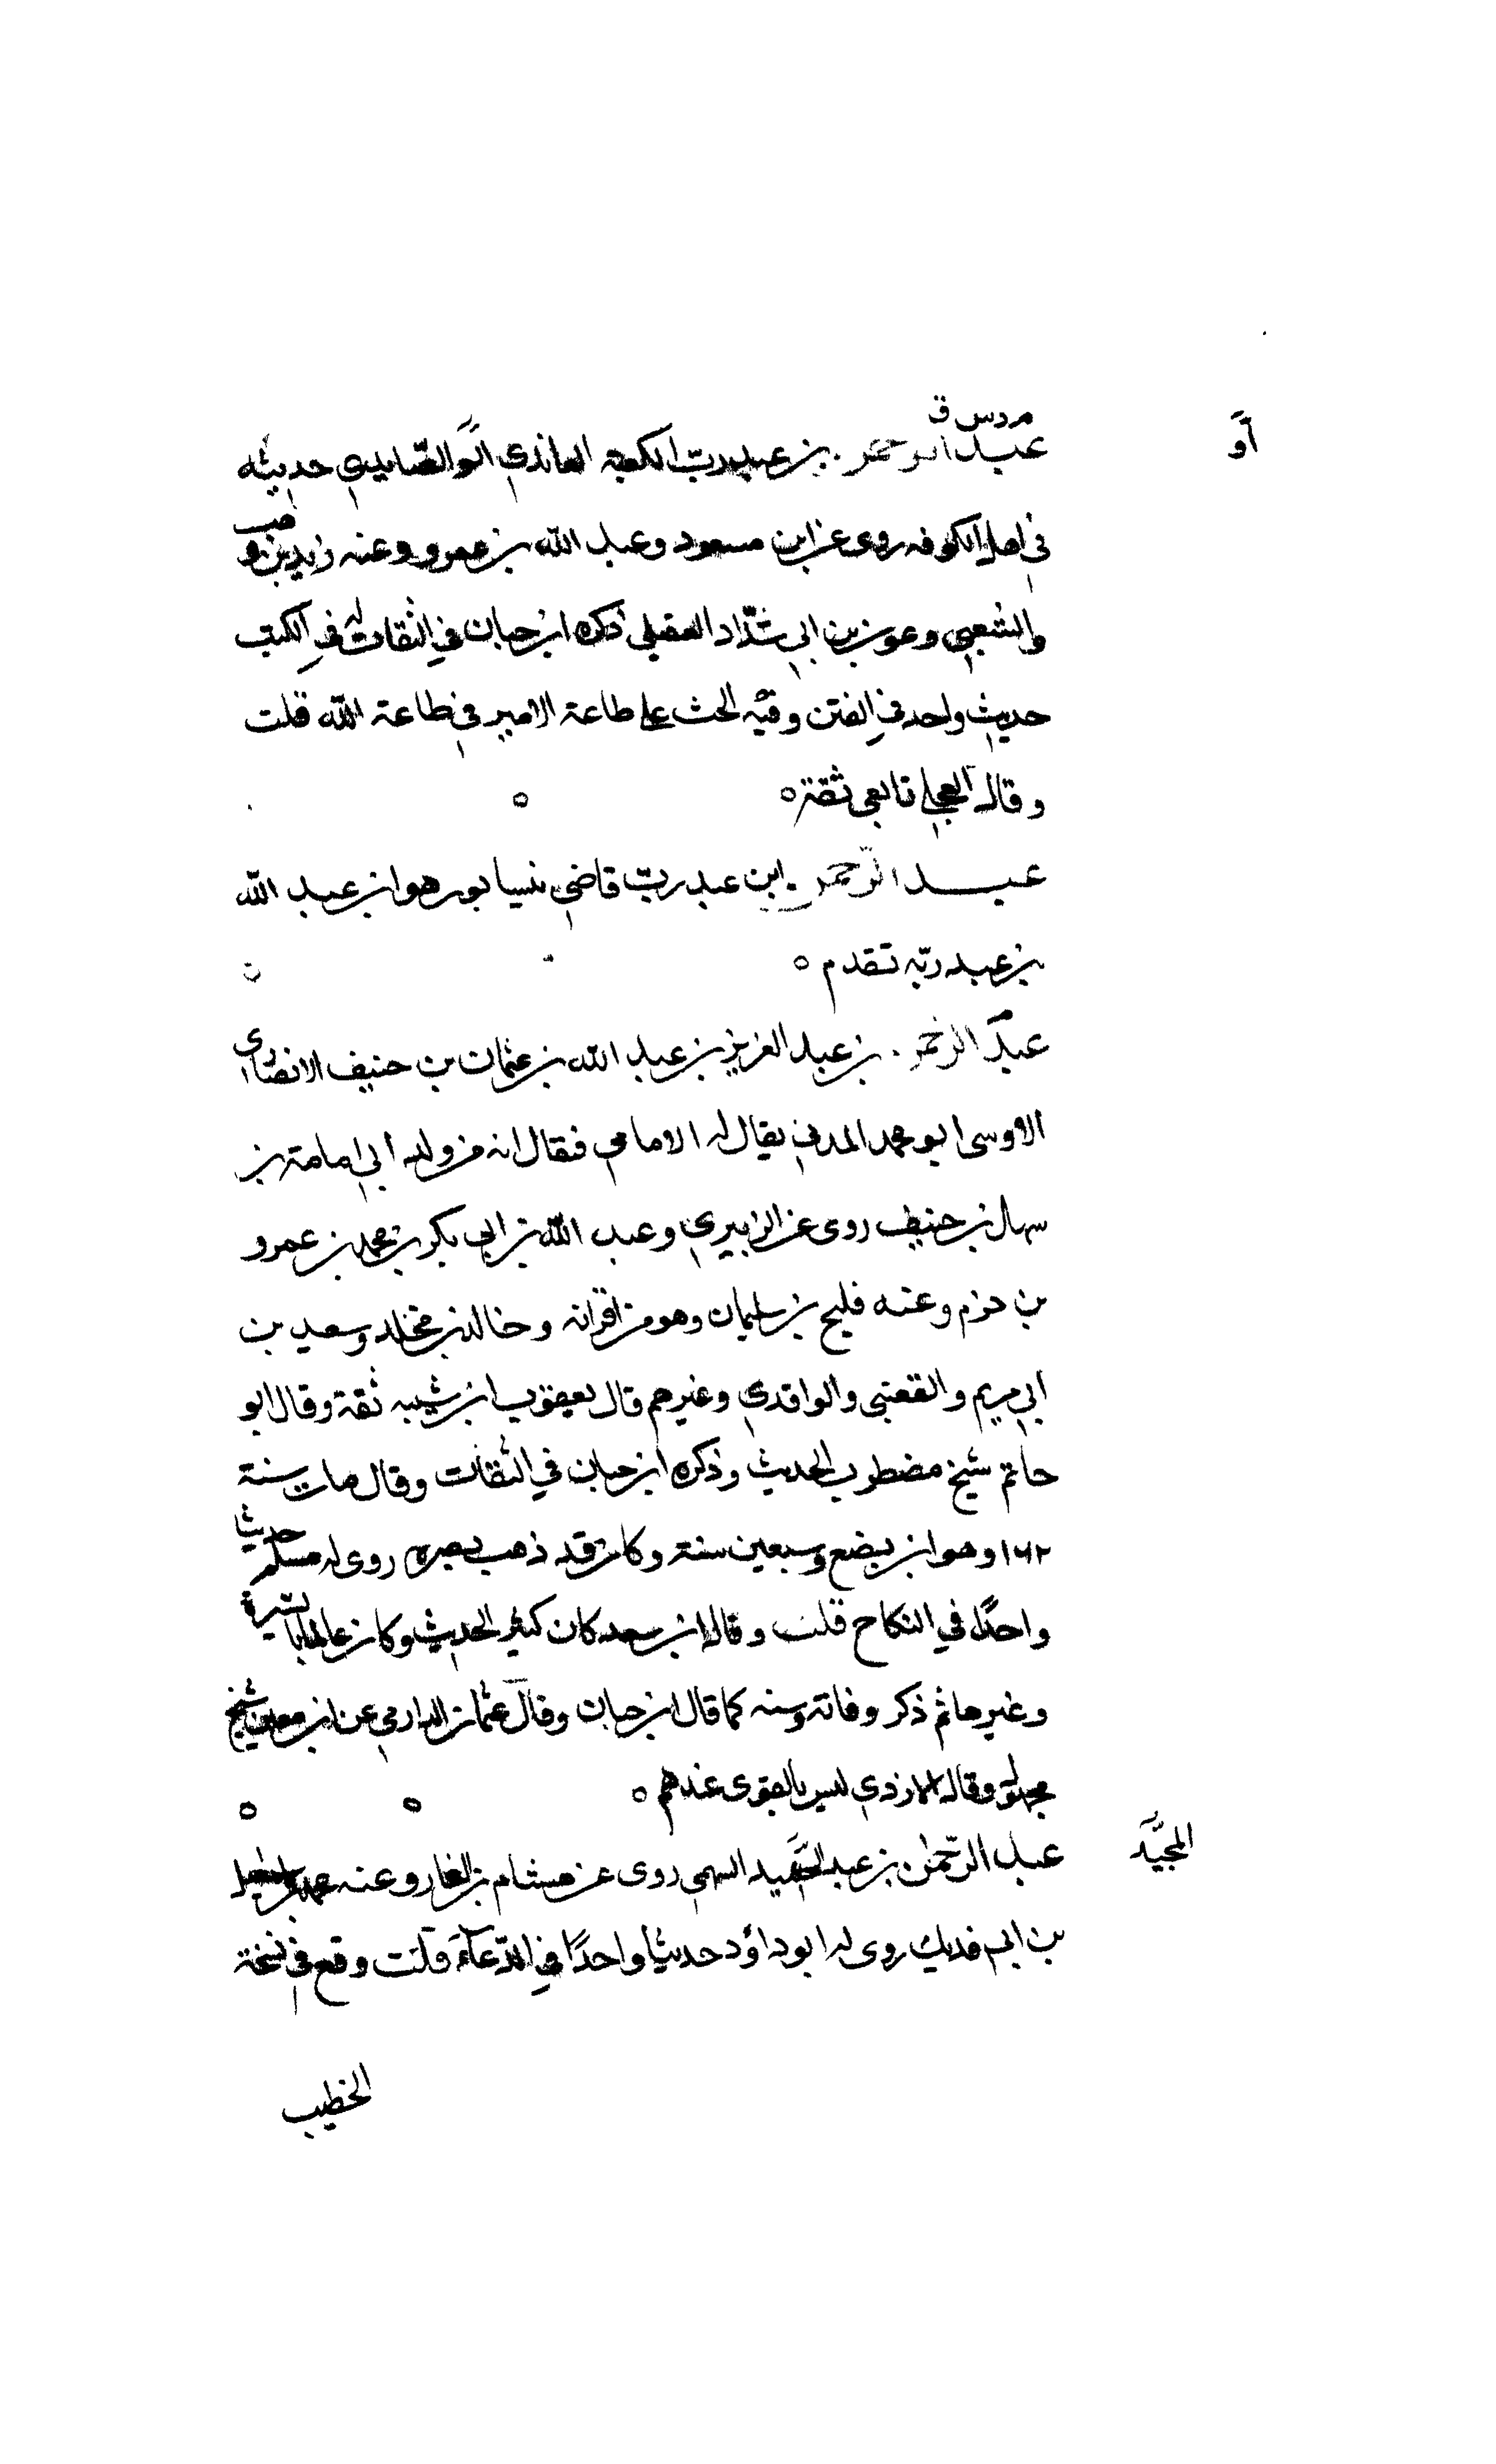 م د س ق
أو
عبد الرحمن بن عبد رب الكعبة العائذي او الصايدي حديثه
في اهل الكوفه روى عن ابن مسعود وعبد الله بن عمرو وعنه زيد بن وهب
والشعبي وعون بن ابي شداد العقيلي ذكره ابن حبان في الثقات له في الكتب
حديث واحد في الفتن وفيه الحث على طاعة الامير في طاعة الله قلت
وقال العجلي تابعي ثقة ٥ ٥
عبد الرحمن ابن عبد رب قاضي نيسابور هو ابن عبد الله
بن عبد ربه تقدم ٥
عبد الرحمن بن عبد العزيز بن عبد الله بن عثمان بن حنيف الانصاري
الاوسي ابو محمد المدني يقال له الامامي فقال انه من ولد ابي امامة بن
سهل بن حنيف روى عن الزبيري وعبد الله بن ابي بكر بن محمد بن عمرو
بن حزم وعنه فليح بن سليمان وهو من اقرانه وخالد بن مخلد وسعيد بن
ابي مريم والقعنبي والواقدي وغيرهم قال يعقوب ابن شيبه ثقة وقال ابو
حاتم شيخ مضطرب الحديث وذكره ابن حبان في الثقات وقال مات سنة
١٦٢ وهو ابن بضع وسبعين سنة وكان قد ذهب بصره روى له مسلم حديثا
واحدًا في النكاح قلت وقال ابن سعد كان كثير الحديث وكان عالما بالسيرة
وغيرها ثم ذكر وفاته وسنه كما قال ابن حبان وقال عثمان الدارمي عن ابن معين شيخ
مجهول وقال الازدي ليس بالقوي عندهم ٥ ٥ ٥
المجيد
عبد الرحمن بن عبد الحميد السهمي روى عن هشام بن الغار وعنه محمد بن اسمعيل
بن ابي فديك روى له ابو داؤد حديثا واحدًا في الدعاء قلت وقع في نسخة
الخطيب